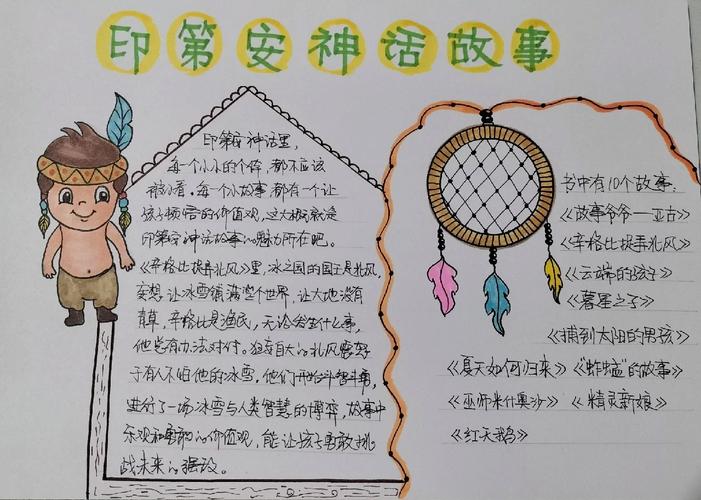 印第安神话故事
印第安神话里，
每一个小小的个体，都不应该
被小看。每一个小故事都有一个让
孩子领悟的价值观，这大概就是
印第安神话故事的魅力所在吧。
《辛格比捉弄北风》里，冰之国的国王是北风，
妄想让冰雪铺满整个世界，让大地没有
青草，辛格比是渔民，无论发生什么事，
他总有办法对付。狂妄自大的北风
于有人不怕他的冰雪，他们开始斗智斗勇，
进行了一场冰雪与人类智慧的博弈，故事中
乐观和勇敢的价值观，能让孩子勇敢挑
战未来的
书中有10个故事，
《故事爷爷—亚古》
《辛格比捉弄北风》
《云端的孩子》
《暮星之子》
《捕到太阳的男孩》
《夏天如何归来》《"蚱蜢"的故事》
《巫师米什奥沙》《精灵新娘》
《红天鹅》